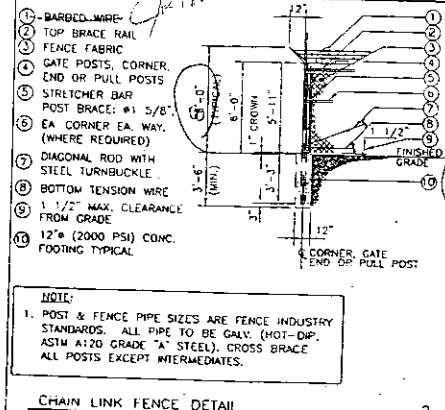 ① BARBED WIRE
② TOP BRACE RAIL
③ FENCE FABRIC
④ GATE POSTS, CORNER,
END OR PULL POSTS
⑤ STRETCHER BAR
POST BRACE: ø1 5/8",
⑥ EA CORNER EA. WAY.
(WHERE REQUIRED)
⑦ DIAGONAL ROD WITH
STEEL TURNBUCKLE
⑧ BOTTOM TENSION WIRE
⑨ 1 1/2" MAX. CLEARANCE
FROM GRADE
⑩ 12"ø (2000 PSI) CONC.
FOOTING TYPICAL
12"
①
②
③
④
⑤
⑥
⑦
⑧
⑨
⑩
(TYPICAL)
6'-0"
1" CROWN
5'-11"
3'-6"
(MIN.)
3'-3"
3"
12"
1 1/2"
FINISHED
GRADE
CORNER, GATE
END OR PULL POST
NOTE:
1. POST & FENCE PIPE SIZES ARE FENCE INDUSTRY
STANDARDS. ALL PIPE TO BE GALV. (HOT-DIP,
ASTM A120 GRADE "A" STEEL). CROSS BRACE
ALL POSTS EXCEPT INTERMEDIATES.
CHAIN LINK FENCE DETAIL